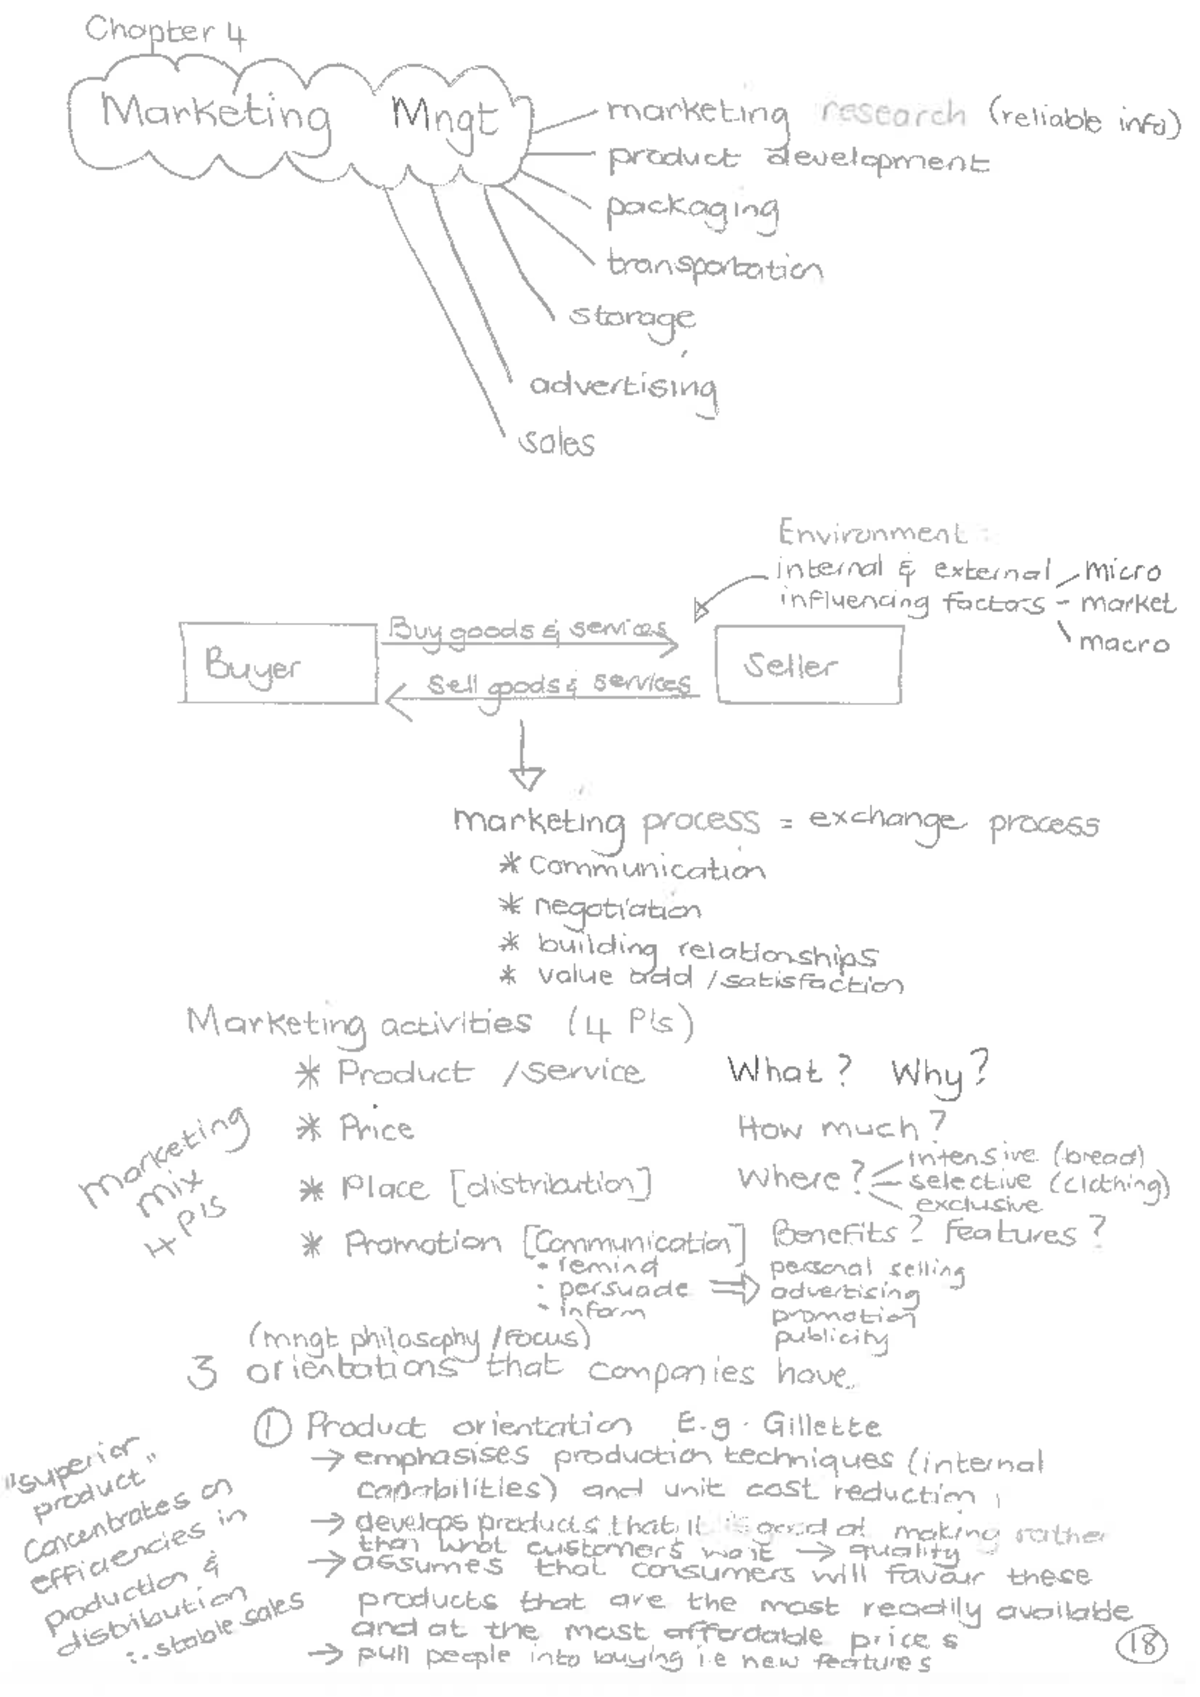 Chapter 4
Marketing Mngt
marketing research (reliable info)
product development
packaging
transportation
storage
advertising
sales
Environment
internal & external
influencing factors - market
micro
macro
Buyer
Buy goods & services
Sell goods & services
Seller
marketing process = exchange process
* communication
* negotiation
* building relationships
* value add / satisfaction
Marketing activities (4 P's)
* Product / Service What? Why?
* Price How much?
* Place [distribution] Where?
intensive (bread)
selective (clothing)
exclusive
* Promotion [Communication] Benefits? Features?
• remind
• persuade ⇒
• inform
personal selling
advertising
promotion
publicity
Marketing
mix
4 P's
(mngt philosophy / Focus)
3 orientations that companies have
① Product orientation E.g. Gillette
→ emphasises production techniques (internal
capabilities) and unit cost reduction
→ develops products that it is good at making rather
than what customers want → quality
→ assumes that consumers will favour these
products that are the most readily available
and at the most affordable prices
→ pull people into buying i.e new features
"superior
product"
Concentrates on
efficiencies in
production &
distribution
∴ stable sales
18